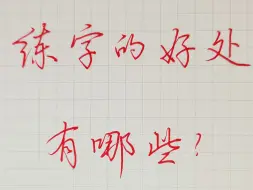 练字的好处
有哪些？